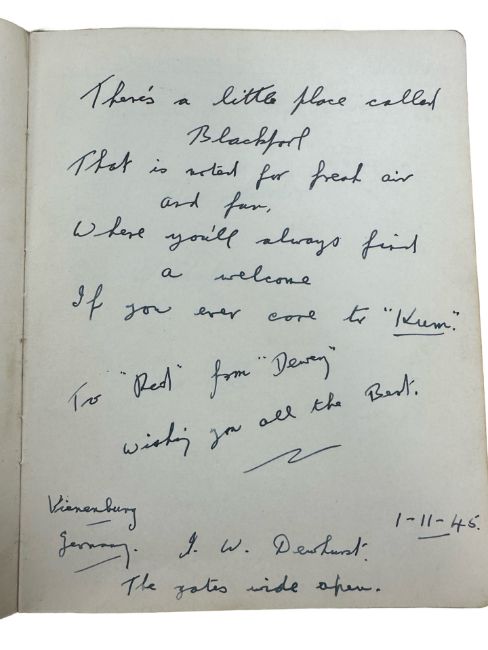 There's a little place called
Blackpool
That is noted for fresh air
and fun,
Where you'll always find
a welcome
If you ever care to "Kum".
To "Red" from "Dewey"
wishing you all the Best.
Vienenburg
Germany.
1-11-45.
J. W. Dewhurst.
The gates wide open.